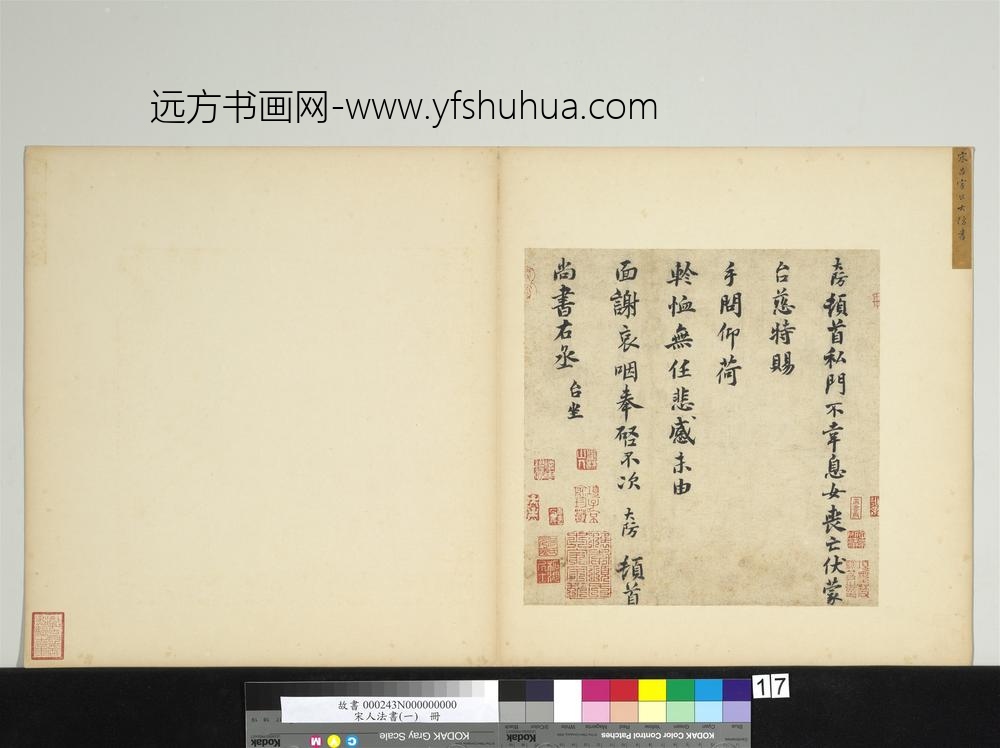 远方书画网-www.yfshuhua.com
大防頓首私門不幸息女喪亡伏蒙
台慈特賜
手問仰荷
軫恤無任悲感未由
面謝哀咽奉啓不次 大防 頓首
尚書右丞 台坐
17
故書 000243N000000000
宋人法書(一) 冊
KODAK Gray Scale
KODAK Color Control Patches
Kodak
C Y M